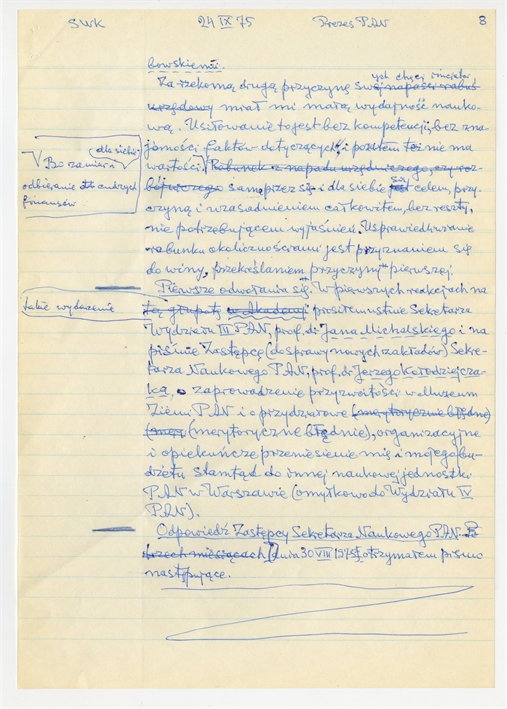 SWK 24 IX 75 Prezes PAN 8
bowskiemu.
Za rzekomą drugą przyczynę swych chęci
urzędowy miał mi małą wydajność nauko-
wą. Usiłowanie to jest bez kompetencji, bez zna-
jomości faktów dotyczących, i poza tem też nie ma
wartości. Rabunek z napadu urzędniczego, czy roz-
bójniczego sam przez się i dla siebie jest celem, przy-
czyną i uzasadnieniem całkowitem, bez reszty,
nie potrzebującem wyjaśnień. Usprawiedliwianie
rabunku okolicznościami jest przyznaniem się
do winy, przekreślaniem przyczyny pierwszej.
V Bo zamiera V dla siebie
odbieranie cudzych
finansów
Pierwsze odwołania się. W pierwszych reakcjach na
takie wydarzenie
tę głupotę prosiłem ustnie Sekretarza
Wydziału III PAN, prof. dr Jana Michalskiego i na
piśmie Zastępcę (do spraw nowych zakładów) Sekre-
tarza Naukowego PAN, prof. dr Jerzego Kołodziejcza-
ka, o zaprowadzenie przyzwoitości w Muzeum
Ziemi PAN i o przydziałowe (merytorycznie błędne)
(mery (merytorycznie błędnie), organizacyjne
i opiekuńcze przeniesienie mię i mojego bu-
dżetu stamtąd do innej naukowej jednostki
PAN w Warszawie (omyłkowo do Wydziału IV
PAN).
Odpowiedź Zastępcy Sekretarza Naukowego PAN.
trzech miesiącach dnia 30 VIII 1975, otrzymałem pismo
następujące.